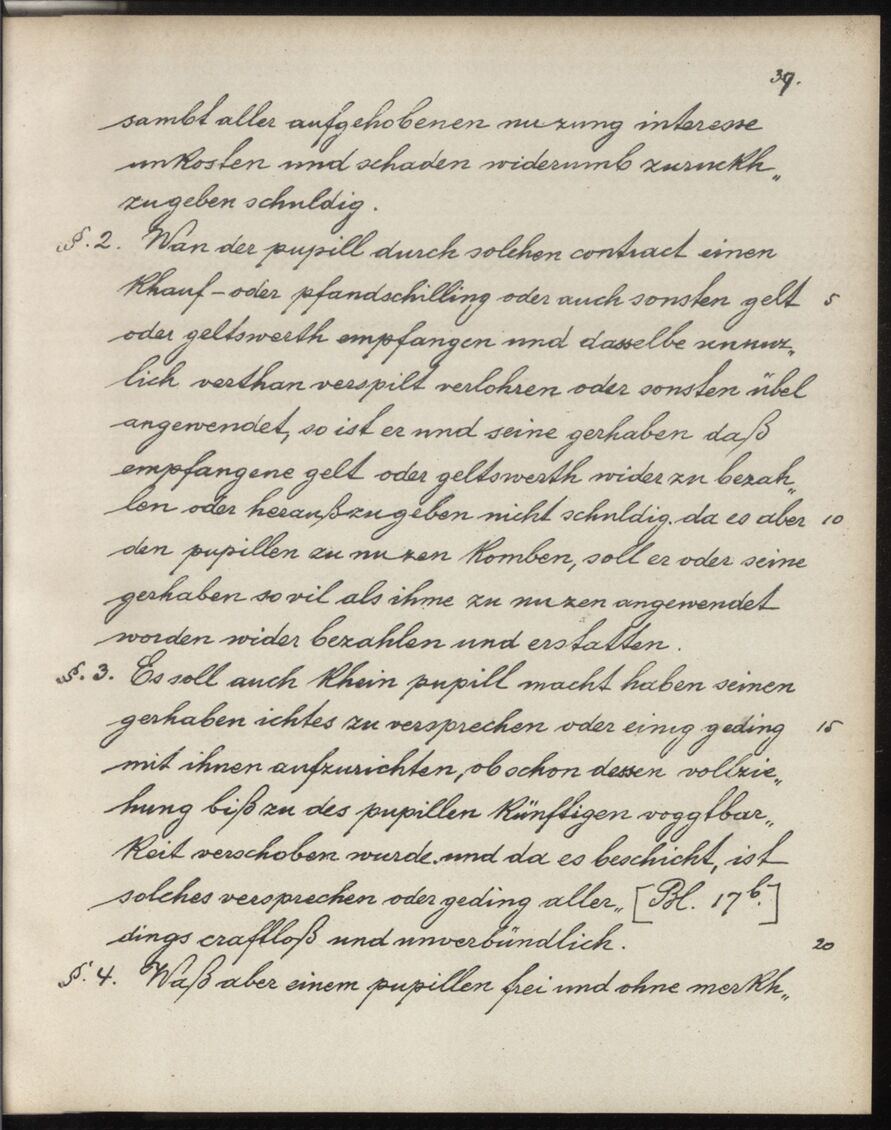 39.
sambt aller aufgehobenen nuzung interesse
unkosten und schaden widerumb zuruckh„
zugeben schuldig.
§. 2. Wan der pupill durch solchen contract einen
khauf-oder pfandschilling oder auch sonsten gelt 5
oder geltswerth empfangen und dasselbe unnuz„
lich verthan verspilt verlohren oder sonsten übel
angewendet, so ist er und seine gerhaben daß
empfangene gelt oder geltswerth wider zu bezah„
len oder herauß zu geben nicht schuldig. da es aber 10
den pupillen zu nuzen komben, soll er oder seine
gerhaben so vil als ihme zu nuzen angewendet
worden wider bezahlen und erstatten.
§. 3. Es soll auch khein pupill macht haben seinen
gerhaben ichtes zu versprechen oder einig geding 15
mit ihnen aufzurichten, ob schon dessen vollzie„
hung biß zu des pupillen künftigen voggtbar„
keit verschoben wurde. und da es beschicht, ist
solches versprechen oder geding aller„ [Bl. 17b.]
dings craftloß und unverbündlich. 20
§. 4. Waß aber einem pupillen frei und ohne merkh„